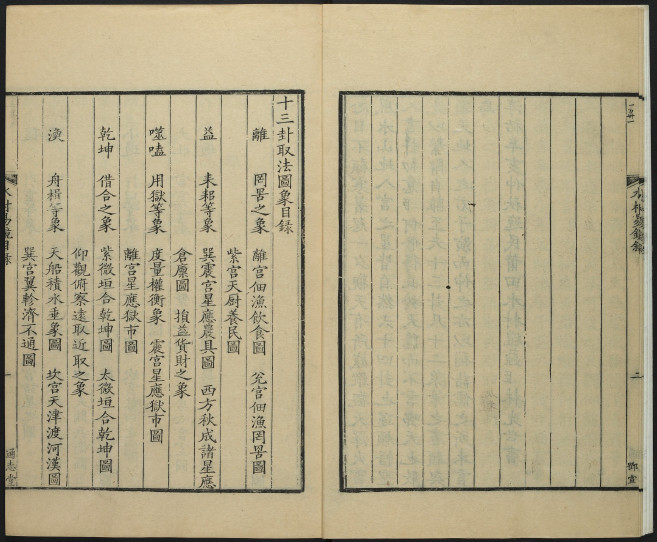 十三卦取法圖象目錄
離 罔罟之象 離宮佃漁飲食圖 兊宮佃漁罔罟圖
紫宮天厨養民圖
益 耒耜等象 巽震宮星應農具圖 西方秋成諸星應
倉廩圖 損益貨財之象
噬嗑 用獄等象 度量權衡象 震宮星應獄市圖
離宮星應獄市圖
乾坤 借合之象 紫微垣合乾坤圖 太微垣合乾坤圖
仰觀俯察遠取近取之象
渙 舟楫等象 天船積水垂象圖 坎宮天津渡河漢圖
巽宮翼軫濟不通圖
一
通志堂
二